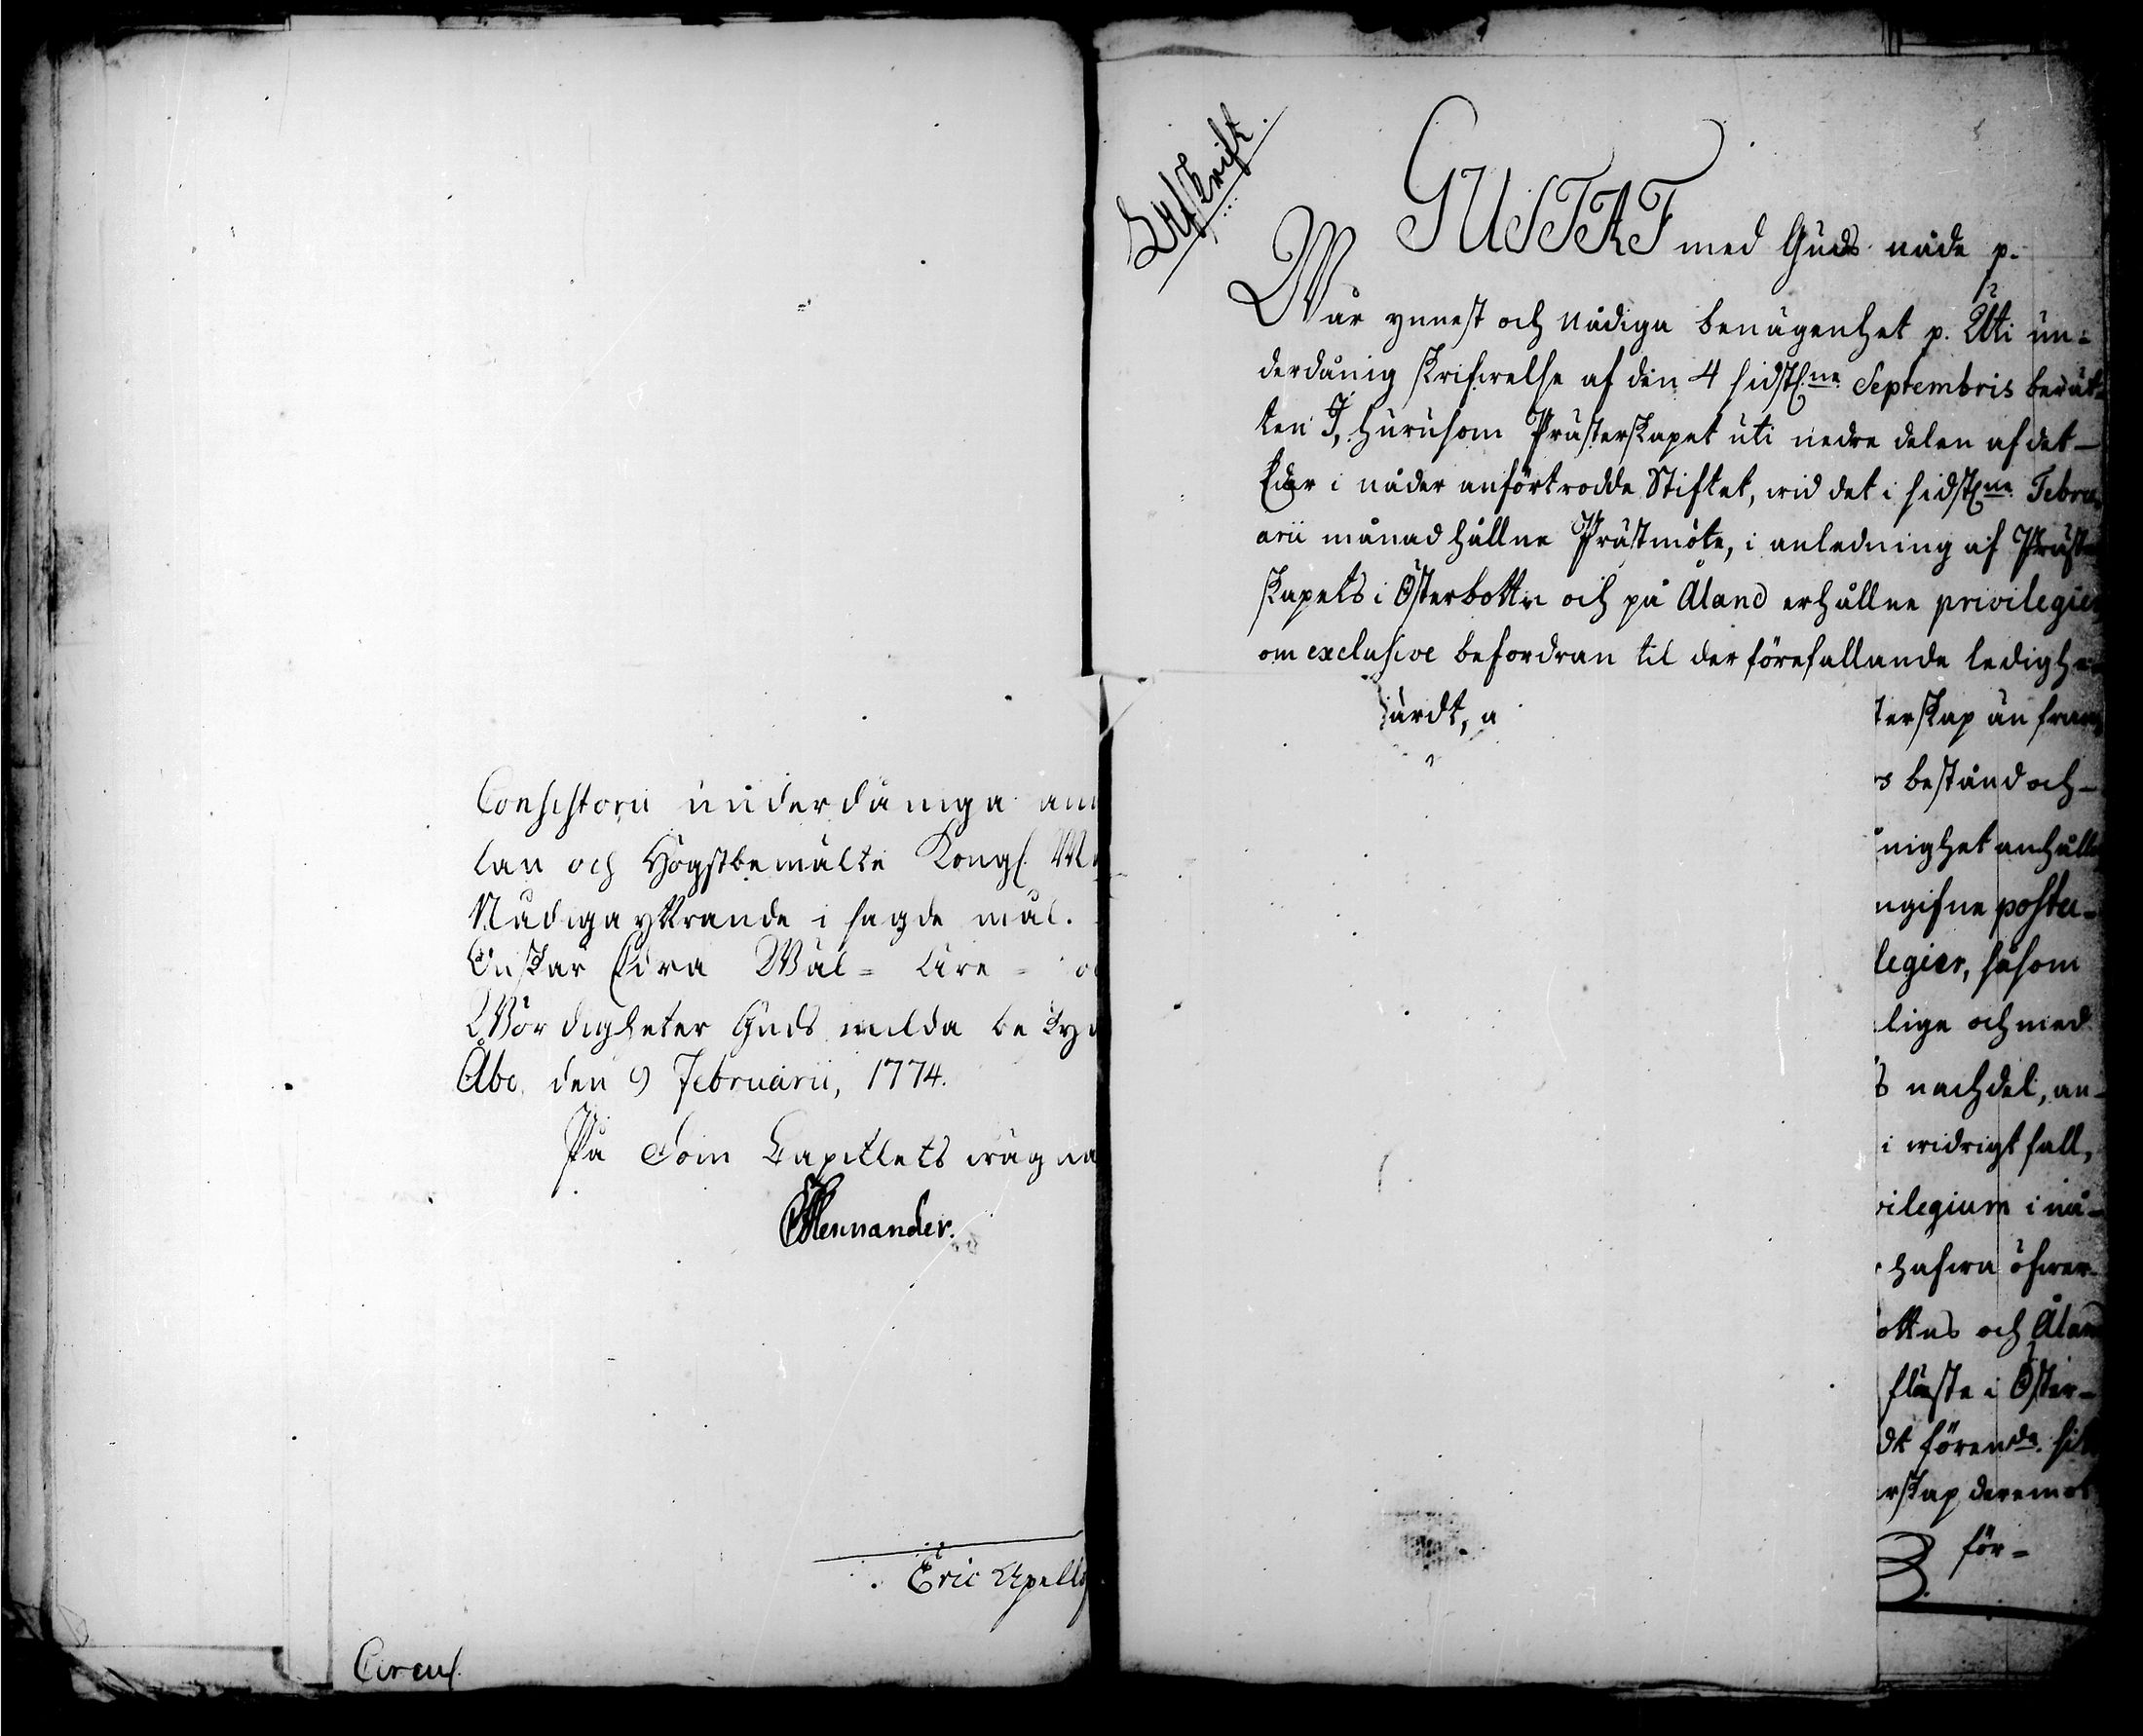 Consistorii underdåniga an
lan och Högstbemälte Kongl. M
Nådiga yttrande i sagde mål.
Önskar Edra Wäl- Äre- o
Wördigheter Guds milda beskyd
Åbo, den 9 Februarii, 1774.
På Dom Capitlets wägna
Mennander.
Eric Apell
Circul.
Afskrift.
GUSTAF med Guds nåde p.
Wår ynnest och Nådiga benägenhet p. Uti un=
derdånig skrifwelse af den 4 sidstl:ne Septembris berät-
ten I, huruhsom Prästerskapet uti nedre delen af det
Eder i nåder anförtrodde Stiftet, wid det i sidstl:ne Febru
arii månad hållne Prästmöte, i anledning af Präste
skapets i Österbottn och på Åland erhållne privilegier
om exclusive befordran til der förefallande ledighe
ärdt, a
terskap än fram
s bestånd och
nighet anhålle
ngifne postu-
legier, såsom
lige och med
s nachdel, an-
i widrigt fall,
vilegium i nå-
hafwa öfwer-
ottns och Åland
flæste i Öster-
dt förende. sit
rskap deremot
för=